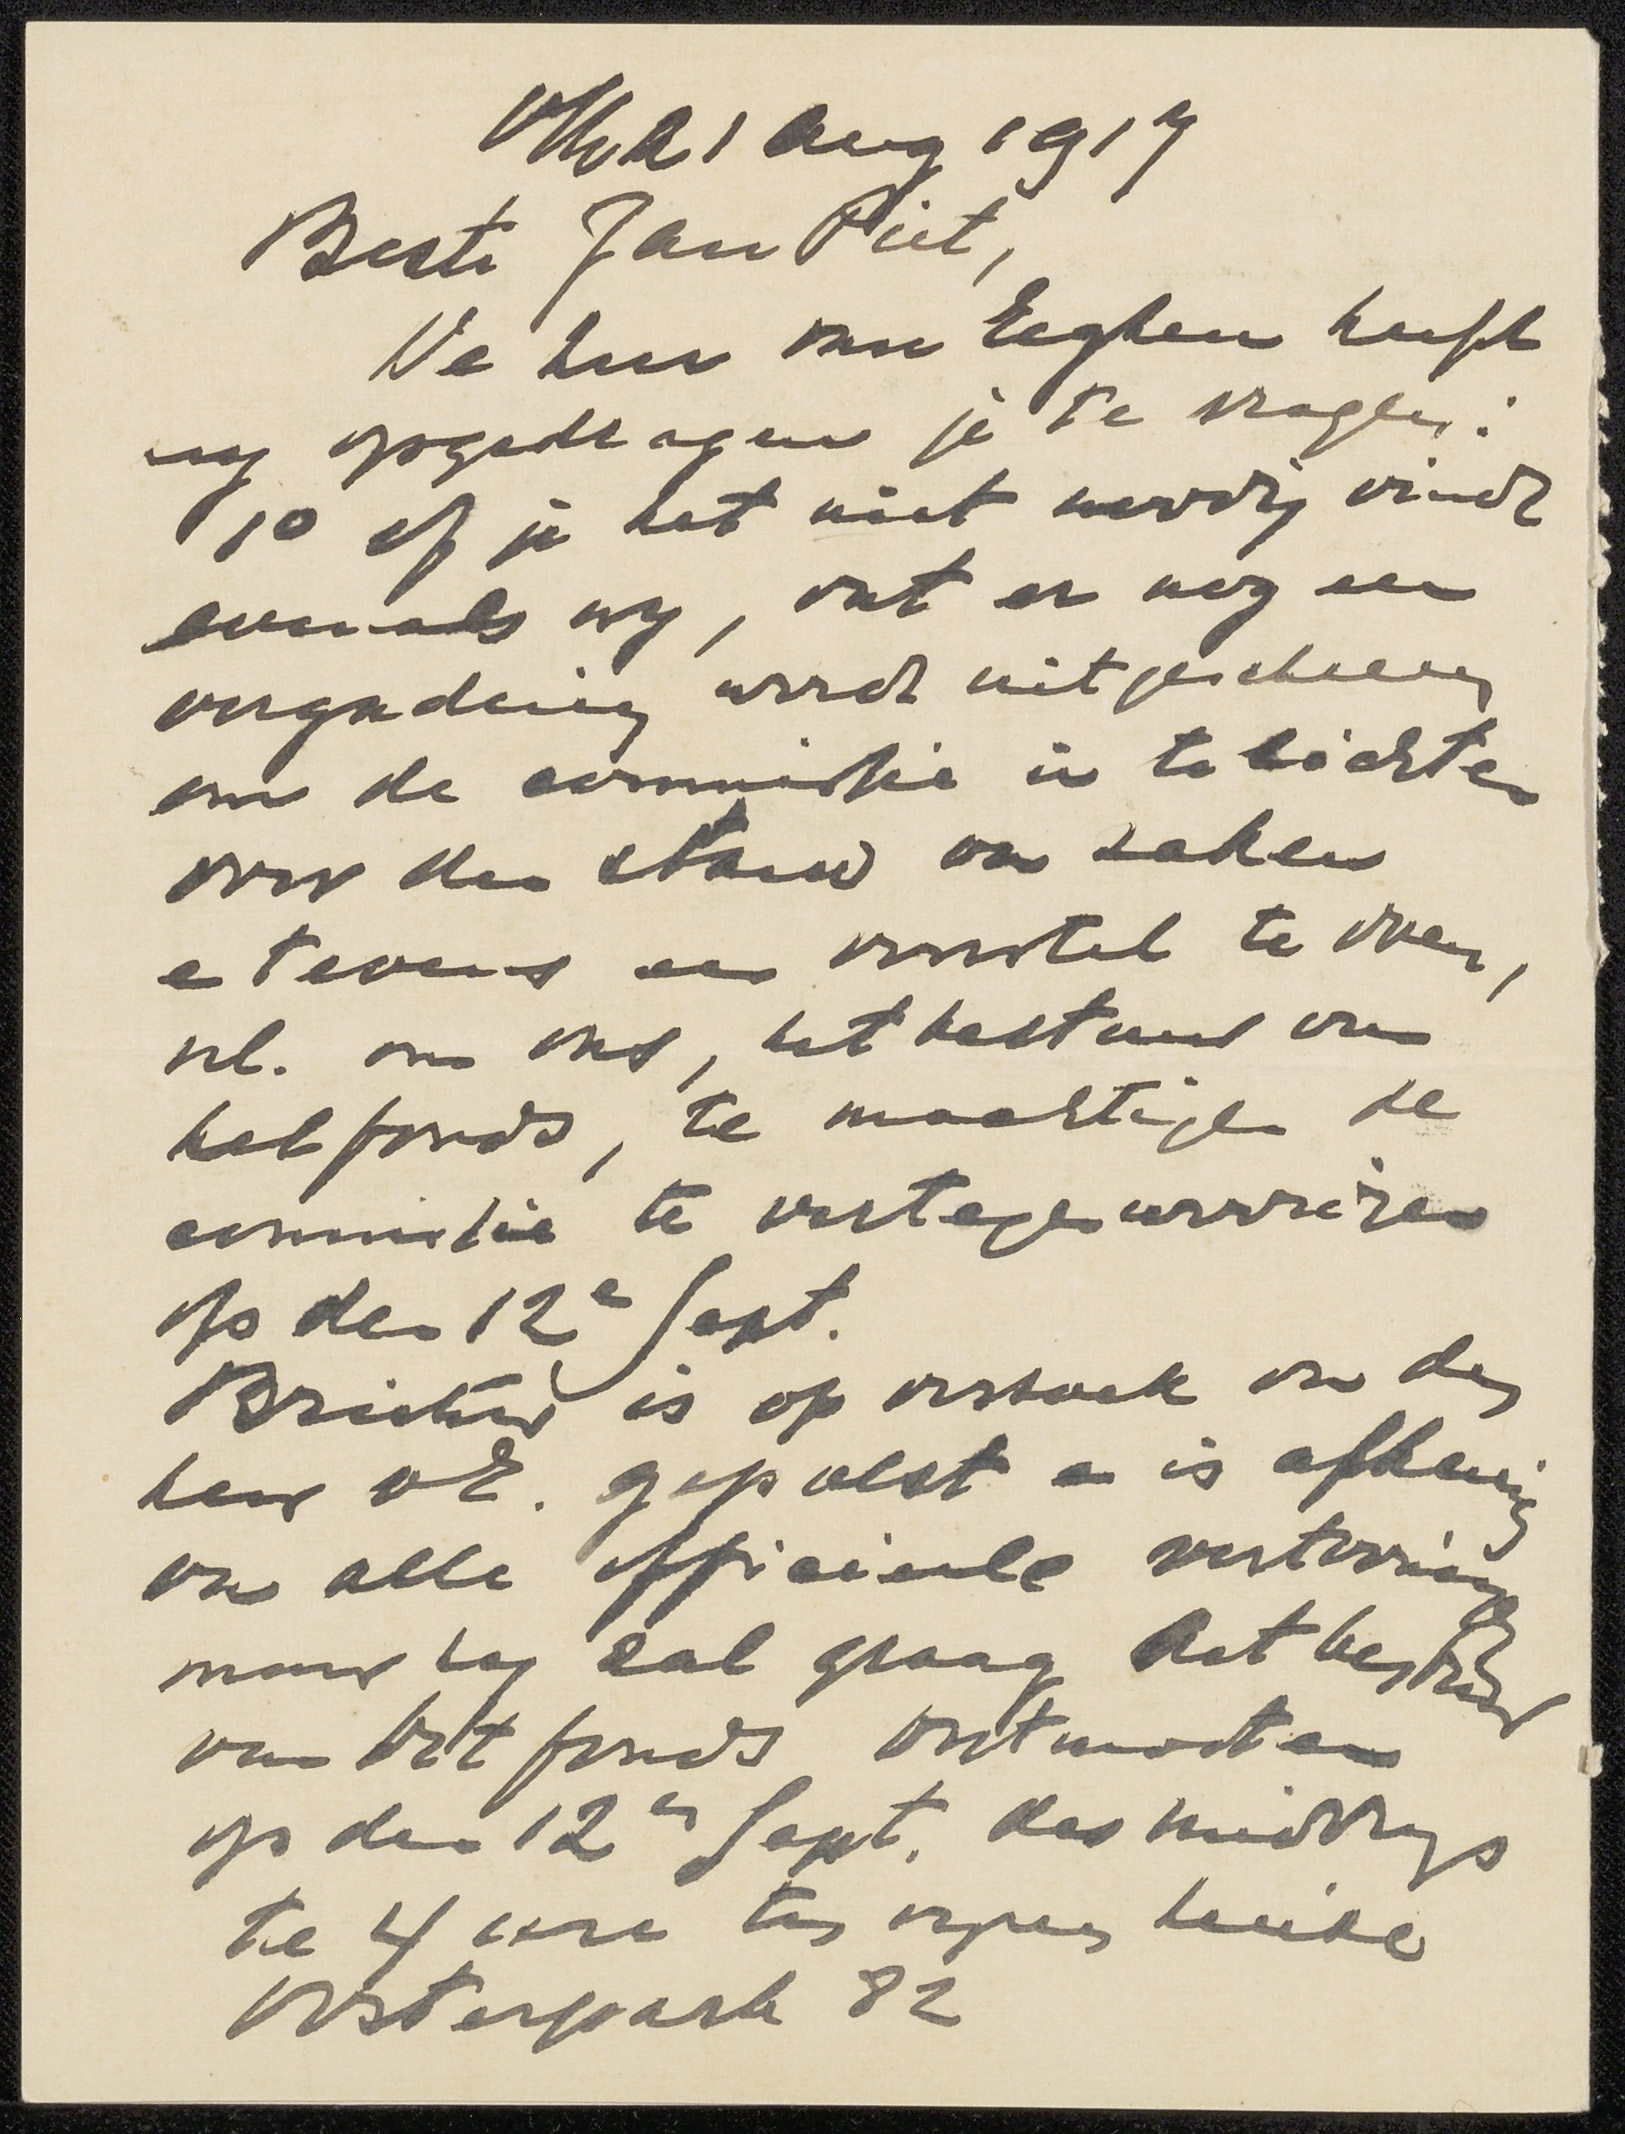 1 Aug 1917
Beste Jan Piet,
De heer van Eeghen heeft
my opgedragen je te vragen:
1o of je het niet noodig vindt
evenals wy, dat er nog een
vergadering wordt uitgeschreven
om de commissie in te lichten
over den stand van zaken
en tevens een voorstel te doen,
nl. om ons, het bestuur van
het fonds, te machtigen de
commissie te vertegenwoordigen
op den 12e Sept.
is op verzoek van den
heer v E. gepolst en is afkeerig
van alle officieele vertooning
maar hy zal graag het bestuur
van het fonds ontmoeten
op den 12en Sept. des middags
te 4 ure ten zynen huize
Oosterpark 82